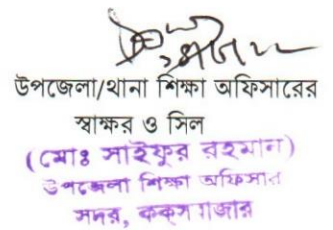 উপজেলা/থানা শিক্ষা অফিসারের
স্বাক্ষর ও সিল
(মোঃ সাইফুর রহমান)
উপজেলা শিক্ষা অফিসার
সদর, ককস বাজার